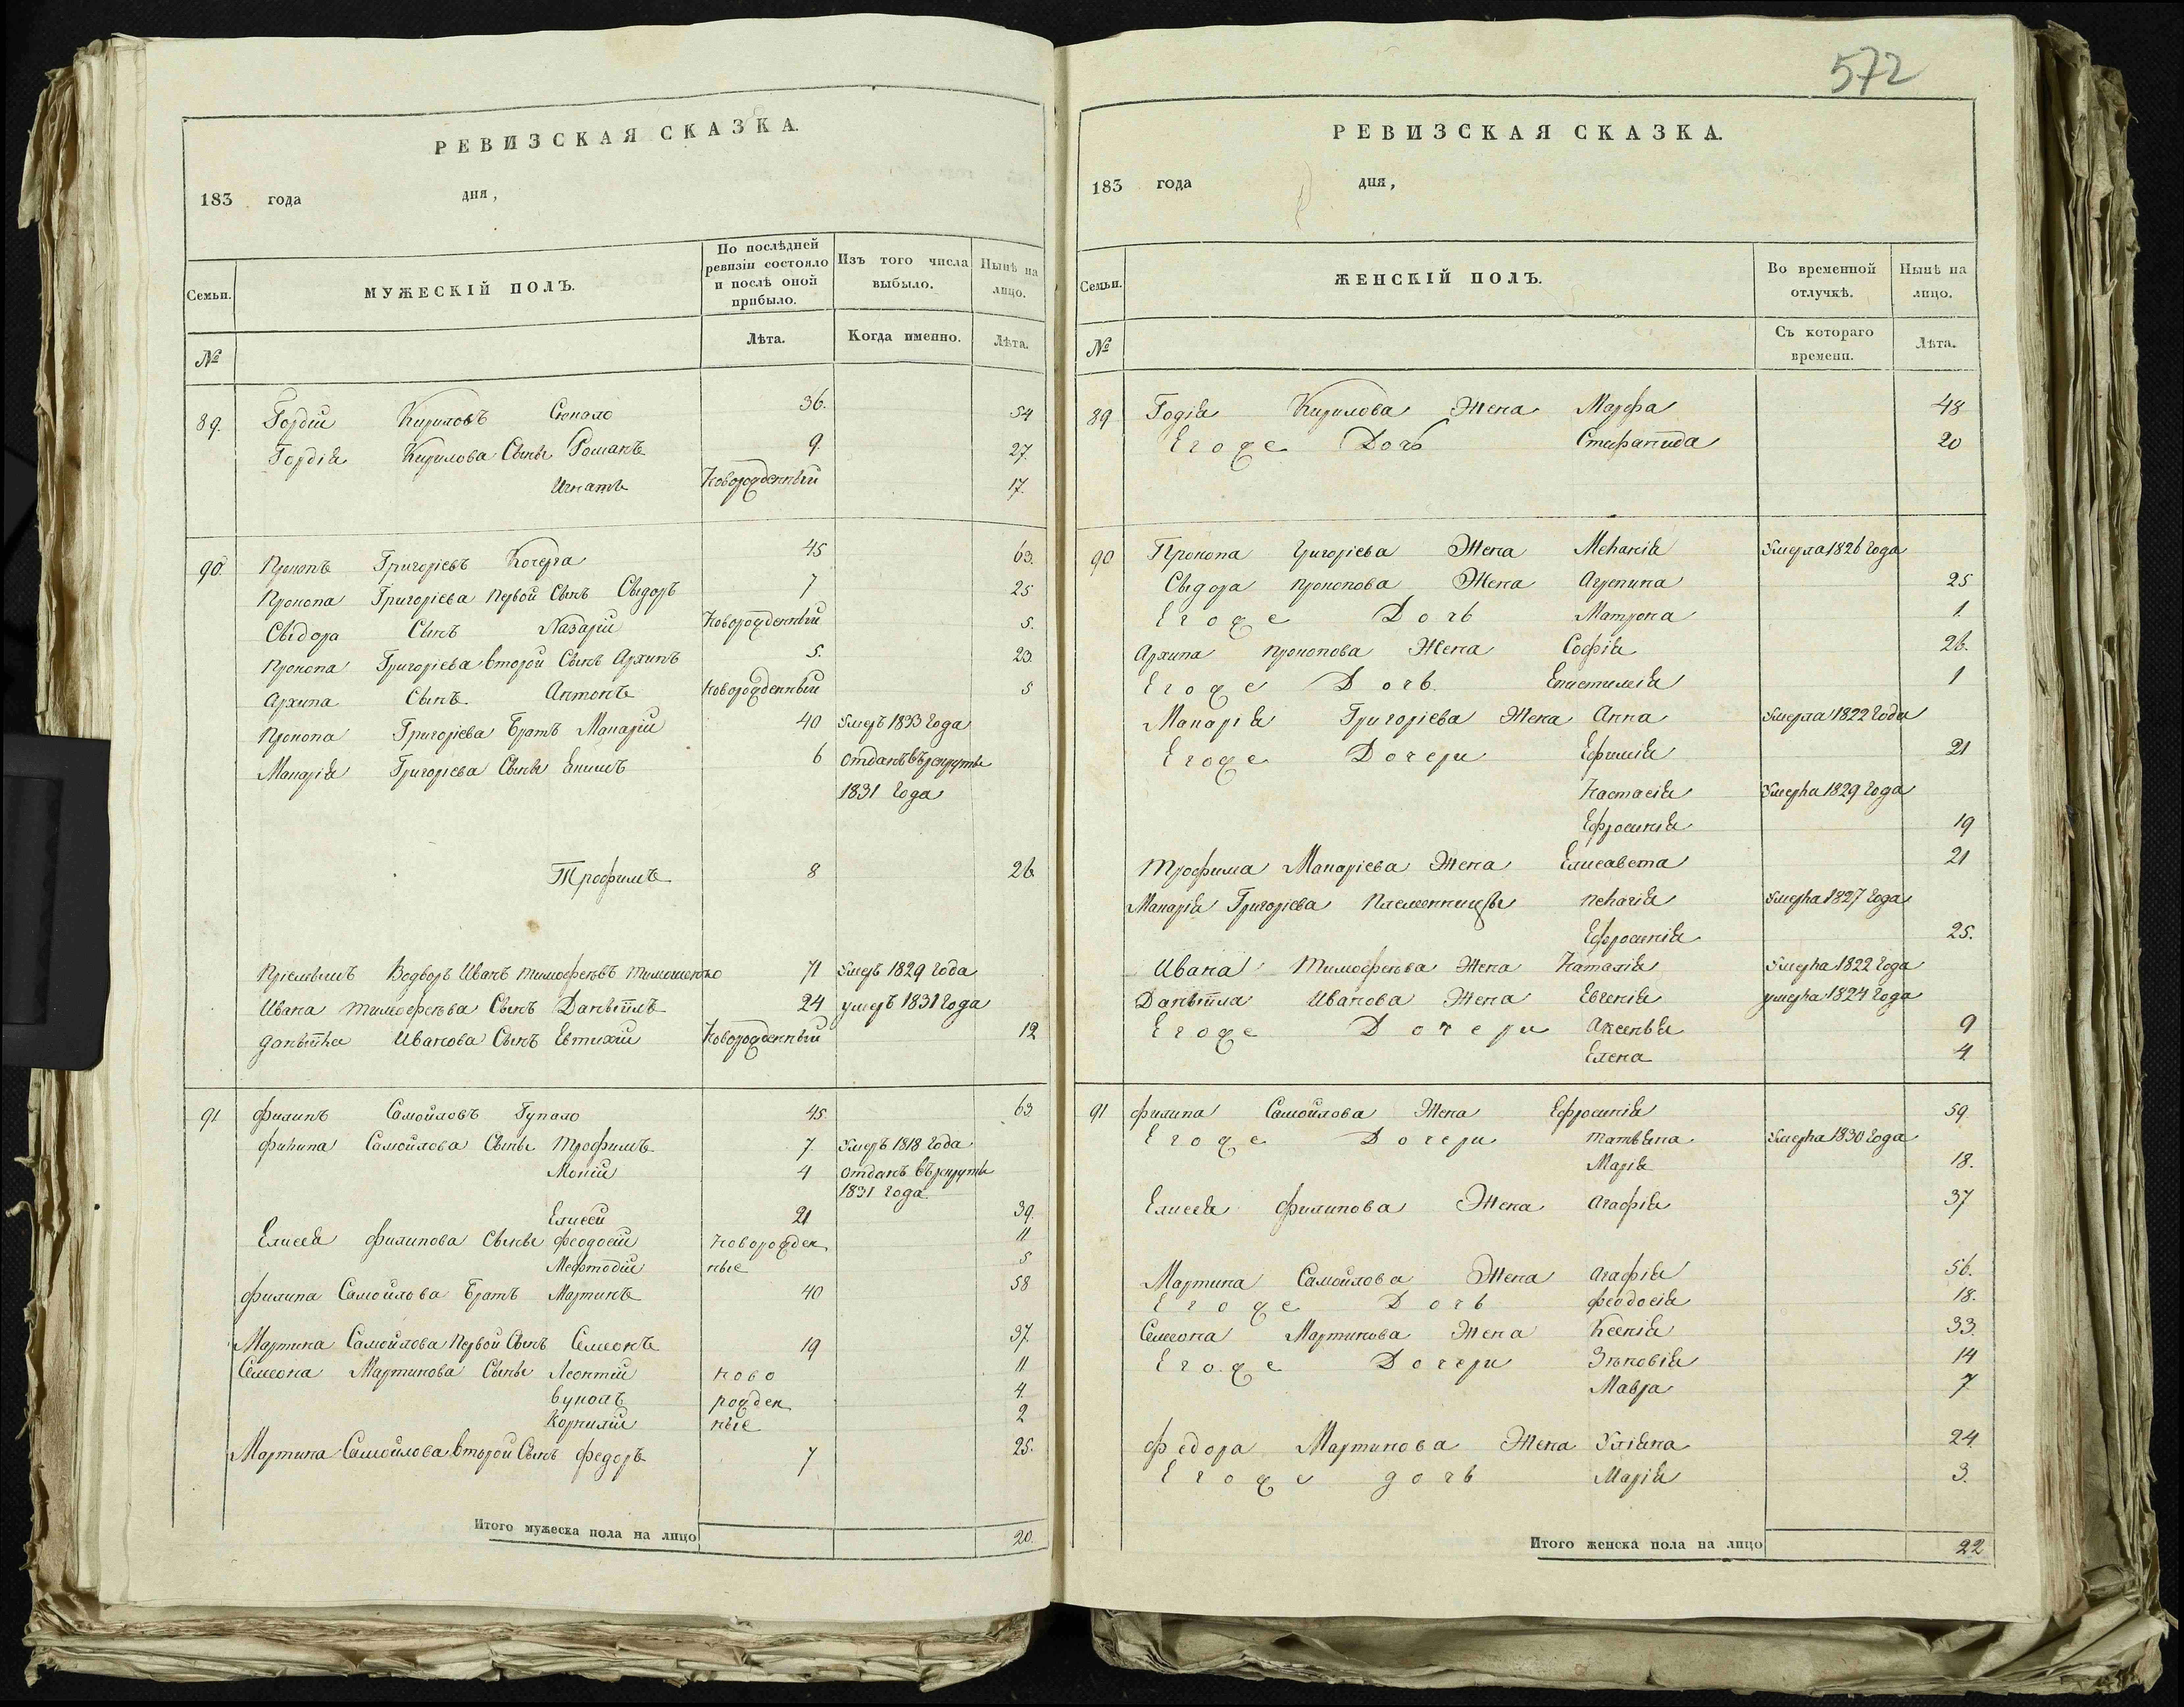 РЕВИЗСКАЯ СКАЗКА.
183 года дня,
Семьи. МУЖЕСКІЙ ПОЛЪ. По послѣдней ревизіи состояло и послѣ оной прибыло. Изъ того числа выбыло. Нынѣ на лицо.
№ Лѣта. Когда именно. Лѣта.
89. Гордій Кириловъ 36. 54
Гордія Кирилова Сыны Романъ 9. 27.
Игнатъ Новорожденный 17.
90. Прокопъ Григорьевъ Кочерга 45 63.
Прокопа Григорьева Первой Сынъ Свыдоръ 7 25
Свідора Сынъ Назарій Новорожденный 5.
Прокопа Григоріева второй Сынъ Архипъ 5. 23.
Архипа Сынъ Антонъ Новорожденный 5
Прокопа Григоріева Братъ Макарій 40 Умеръ 1833 года
Макарія Григоріева Сыны Екимъ 6 отданъ въ рекруты
1831 года
Трофимъ 8 26
Иванъ Тимофеевъ Тимошенко 71 Умеръ 1829 года
Ивана Тимофеева Сынъ Даніилъ 24 умеръ 1831 года
Даніила Иванова Сынъ Евтихій Новорожденный 12
91 Филипъ Самойловъ Гупало 45 63
Филипа Самойлова Сыны Трофимъ 7. Умеръ 1818 года
Мокій 4 отданъ въ рекруты
1831 года
Елисей 21 39.
Елисея Филипова Сыны Феодосій новорожден 11
Мефтодій ные 5
Филипа Самойлова Братъ Мартинъ 40 58
Мартина Самойлова Первой Сынъ Семионъ 19 37.
Семиона Мартинова Сыны Леонтій ново 11
Вуколъ рожден 4.
Корнилій ные 2
Мартина Самойлова второй Сынъ Федоръ 7 25.
Итого мужеска пола на лицо 20.
572
РЕВИЗСКАЯ СКАЗКА.
183 года дня,
Семьи. ЖЕНСКІЙ ПОЛЪ. Во временной отлучкѣ. Нынѣ на лицо.
№ Съ котораго времени. Лѣта.
89 Годія Кирилова Жена Марфа 48
Егоже Дочь Стефанида 20
90 Прокопа Григоріева Жена Меланія Умерла 1826 года
Свідора Прокопова Жена Агрепина 25
Егоже Дочь Матрона 1.
Архипа Прокопова Жена Софія 26.
Егоже Дочь Епистимія 1
Макарія Григоріева Жена Анна Умерла 1822 года
Егоже Дочери Ефимія 21
Настасія Умерла 1829 года
Ефросинія 19
Трофима Макаріева Жена Елисавета 21
Макарія Григоріева Племенницы Пелагія Умерла 1827 года
Ефросинія 25.
Ивана Тимофеева Жена Наталія Умерла 1822 года
Даніила Иванова Жена Евгенія умерла 1824 года
Егоже Дочери Аксенья 9
Елена 4.
91 Филипа Самойлова Жена Ефросинія 59
Егоже Дочери Татьяна Умерла 1830 года
Марія 18.
Елисея Филипова Жена Агафія 37
Мартина Самойлова Жена Агафія 56.
Егоже Дочь Феодосія 18.
Семиона Мартинова Жена Ксенія 33.
Егоже Дочери Зѣновія 14
Мавра 7
Федора Мартинова Жена Уліяна 24.
Егоже дочь Марія 3.
Итого женска пола на лицо 22